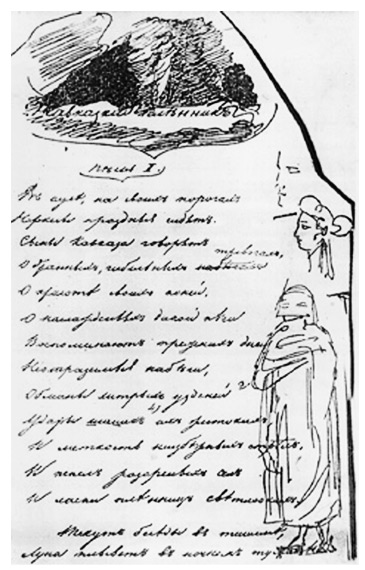 Кавказскій Плѣнникъ
пѣснь I.
Въ аулѣ, на своихъ порогахъ
Черкесы праздные сидятъ.
Сыны Кавказа говорятъ
тревогахъ,
О бранныхъ, гибельныхъ
О красотѣ своихъ коней,
О наслажденьяхъ дикой нѣги
Воспоминаютъ прежнихъ дней
Неотразимые набѣги,
Обманы хитрыхъ узденей
Удары шашекъ ихъ жестокихъ
И меткость неизбѣжныхъ стрѣлъ,
И пепелъ разоренныхъ селъ
И ласки плѣнницъ
Текутъ бесѣды въ тишинѣ
Луна плыветъ въ ночномъ туманѣ